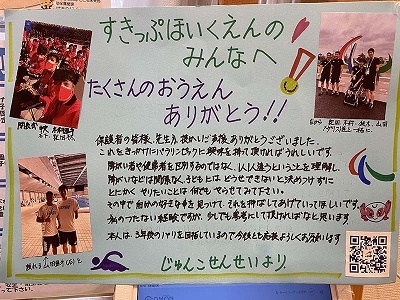 すきっぷほいくえんの
みんなへ
たくさんのおうえん
ありがとう!!
保護者の皆様、先生方、温かいご声援ありがとうございました。
これをきっかけにパラリンピックに興味を持って頂ければうれしいです。
障がい者や健常者を区別するのではなく、1人1人違うということを理解し、
障がいなどは関係なく、子どもには どうせできないと決めつけずに
とにかく やりたいことは 何でも やらせてみて下さい。
その中で 自分の好きな事を見つけて、それを伸ばしてあげていってほしいです。
私のつたない経験ですが、少しでも参考にして頂ければなと思います。
本人は 3年後のパリを目指しているので今後とも応援よろしくお願いします
じゅんこせんせいより